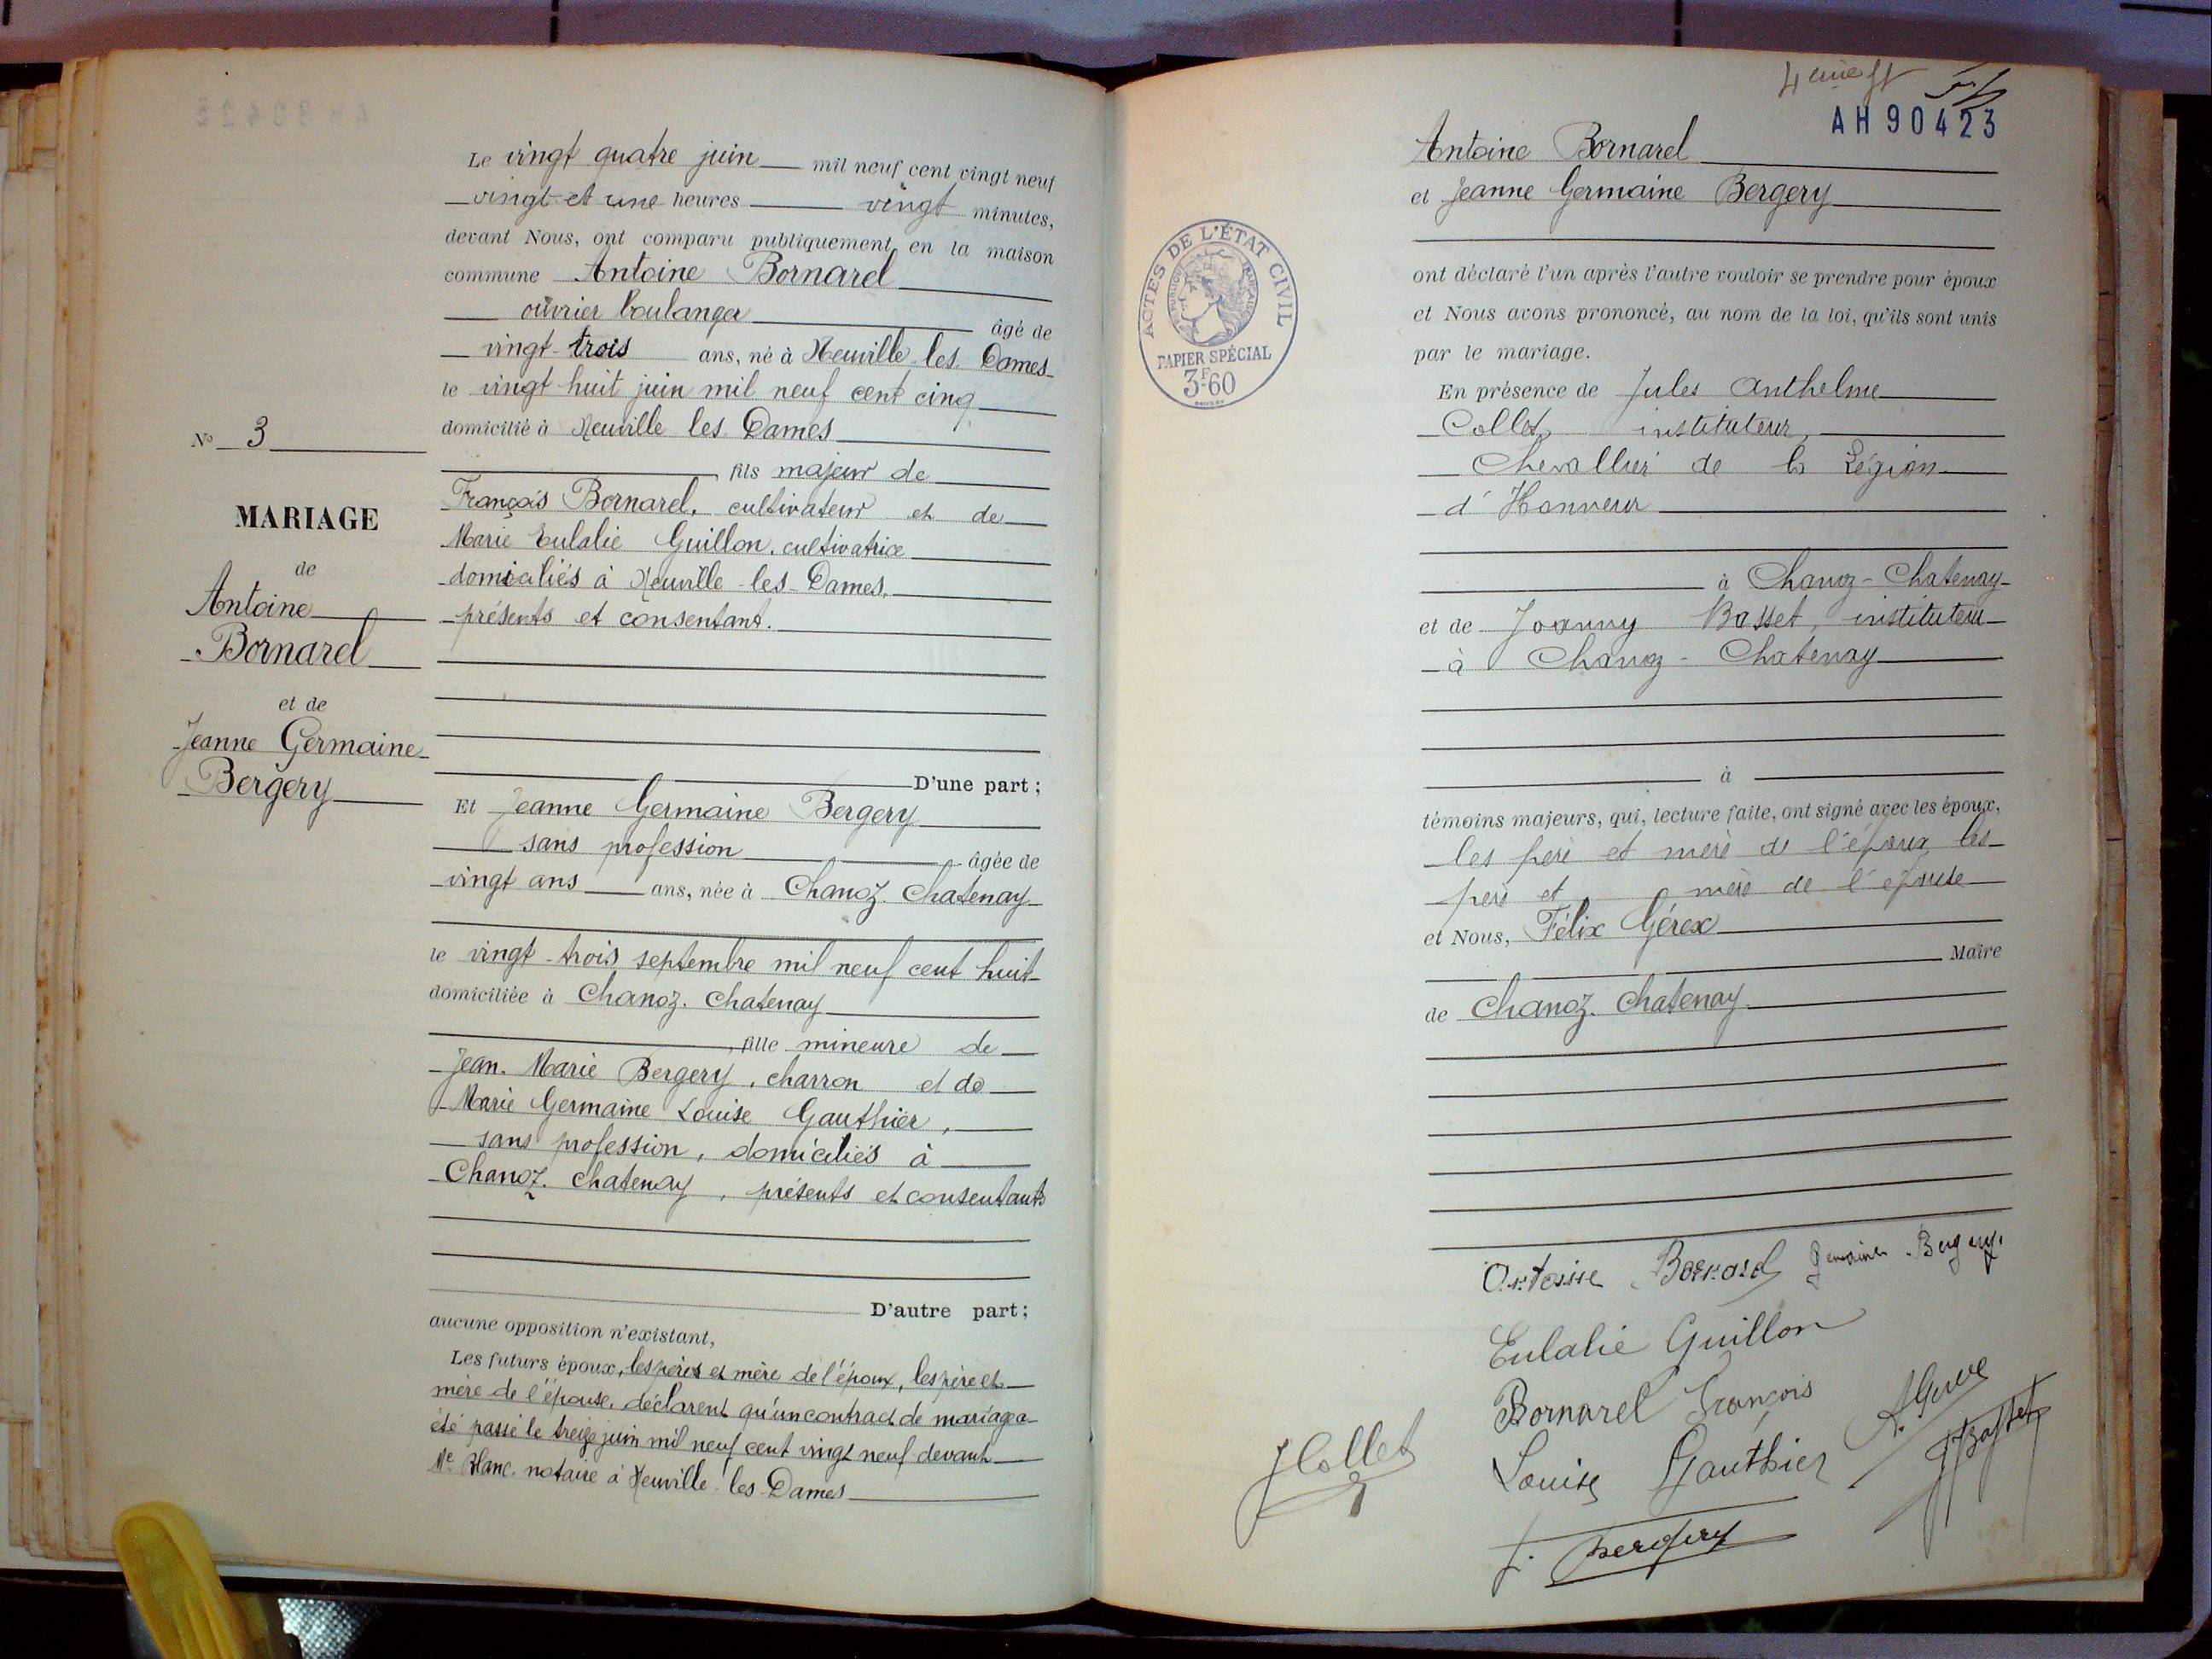 N° 3
MARIAGE
de
Antoine
Bornarel
et de
Jeanne Germaine
Bergery
Le vingt quatre juin mil neuf cent vingt neuf
vingt et une heures vingt minutes,
devant Nous, ont comparu publiquement en la maison
commune Antoine Bornarel
ouvrier boulanger âgé de
vingt-trois ans, né à Neuville les Dames
le vingt huit juin mil neuf cent cinq
domicilié à Neuville les Dames
fils majeur de
François Bornarel, cultivateur et de
Marie Eulalie Guillon, cultivatrice
domiciliés à Neuville-les-Dames,
présents et consentant.
D'une part ;
Et Jeanne Germaine Bergery
sans profession âgée de
vingt ans ans, née à Chanoz-Chatenay
le vingt-trois septembre mil neuf cent huit
domiciliée à Chanoz-Chatenay
fille mineure de
Jean-Marie Bergery, charron et de
Marie Germaine Louise Gauthier,
sans profession, domiciliés à
Chanoz-Chatenay, présents et consentants
D'autre part ;
aucune opposition n'existant,
Les futurs époux, les pères et mère de l'époux, les père et
mère de l'épouse, déclarent qu'un contract de mariage a
été passé le treize juin mil neuf cent vingt neuf devant
Me Blanc, notaire à Neuville-les-Dames
AH90423
ACTES DE L'ÉTAT CIVIL
PAPIER SPÉCIAL
3F60
Antoine Bornarel
et Jeanne Germaine Bergery
ont déclaré l'un après l'autre vouloir se prendre pour époux
et Nous avons prononcé, au nom de la loi, qu'ils sont unis
par le mariage.
En présence de Jules Anthelme
Collet, instituteur,
Chevallier de la Légion
d'Honneur
à Chanoz-Chatenay
et de Joanny Basset, instituteur
à Chanoz-Chatenay
à
témoins majeurs, qui, lecture faite, ont signé avec les époux,
les père et mère de l'époux, les
père et mère de l'épouse
et Nous, Félix Gérex
Maire
de Chanoz-Chatenay
Antoine Bornarel Germaine Bergery
Eulalie Guillon
Bornarel François
Louise Gauthier
JBasset
JCollet
J. Bergery